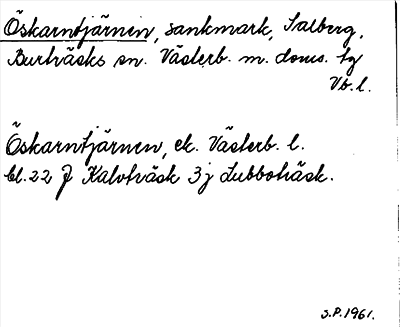 Öskarntjärnen, sankmark, Salberg,
Burträsks sn. Västerb. m. doms. tg
Vb. l.
Öskarntjärnen, ek. Västerb. l.
bl. 22 J Kalvträsk 3 j Lubboträsk.
S.P. 1961.